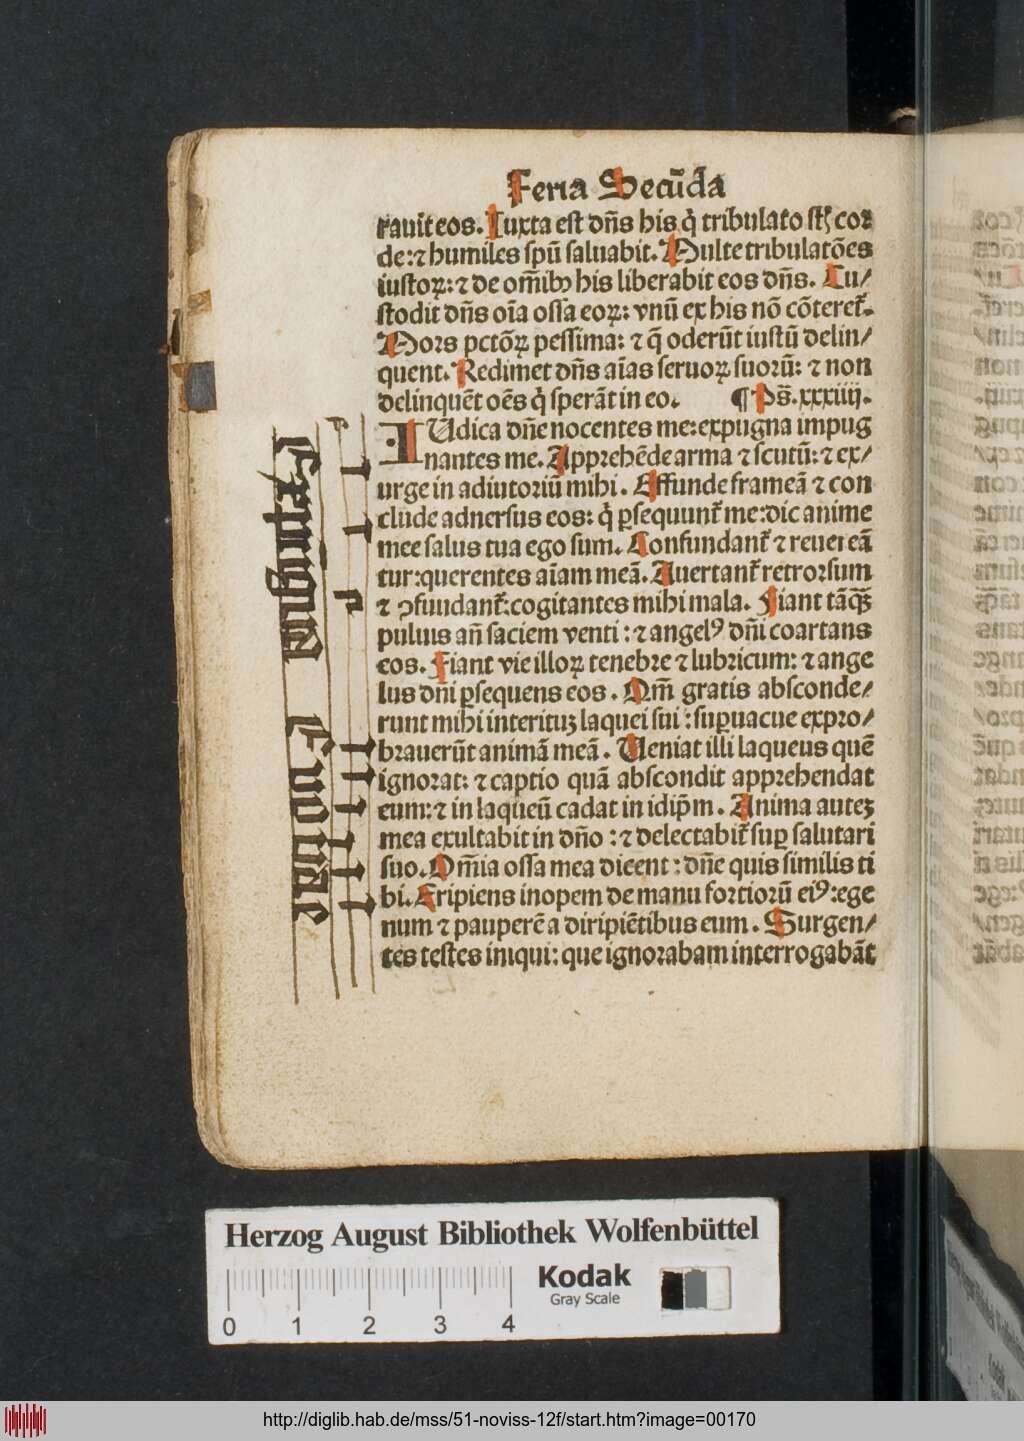 Feria Secūda
rauit eos. Iuxta est dn̄s his q̇ tribulato st̄ cor
de: ⁊ humiles spū saluabit. Multe tribulatōes
iustoꝝ: ⁊ de om̄ibꝰ his liberabit eos dn̄s. Cu/
stodit dn̄s oīa ossa eoꝝ: vnū ex his nō cōteret᷑.
Mors pctōꝝ pessima: ⁊ q̄ oderūt iustū delin/
quent. Redimet dn̄s aīas seruoꝝ suorū: ⁊ non
delinquēt oēs q̇ sperāt in eo. ¶ Ps̄. xxxiiij.
IUdica dn̄e nocentes me: expugna impug
nantes me. Apprehēde arma ⁊ scutū: ⁊ ex/
urge in adiutoriū mihi. Effunde frameā ⁊ con
clude aduersus eos: q̇ ꝑsequunt᷑ me: dic anime
mee salus tua ego sum. Confundant᷑ ⁊ reuereā
tur: querentes aīam meā. Auertant᷑ retrorsum
⁊ ꝯfundant᷑: cogitantes mihi mala. Fiant tāqꝫ
puluis an̄ faciem venti: ⁊ angelꝰ dn̄i coartans
eos. Fiant vie illoꝝ tenebre ⁊ lubricum: ⁊ ange
lus dn̄i ꝑsequens eos. Qm̄ gratis absconde/
runt mihi interituꝫ laquei sui: suꝑuacue expro/
brauerūt animā meā. Ueniat illi laqueus quē
ignorat: ⁊ captio quā abscondit apprehendat
eum: ⁊ in laqueū cadat in idip̄m. Anima auteꝫ
mea exultabit in dn̄o: ⁊ delectabit᷑ suꝑ salutari
suo. Om̄ia ossa mea dicent: dn̄e quis similis ti
bi. Eripiens inopem de manu fortiorū eiꝰ: ege
num ⁊ pauperē a diripiētibus eum. Surgen/
tes testes iniqui: que ignorabam interrogabāt
Expugna Euouae
Herzog August Bibliothek Wolfenbüttel
Kodak
Gray Scale
0 1 2 3 4
http://diglib.hab.de/mss/51-noviss-12f/start.htm?image=00170